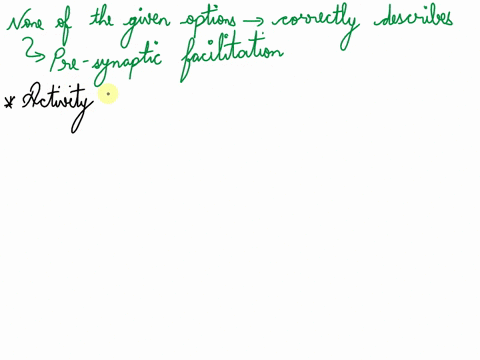 None of the given options → correctly describes
↳ Pre-synaptic facilitation
* Activity